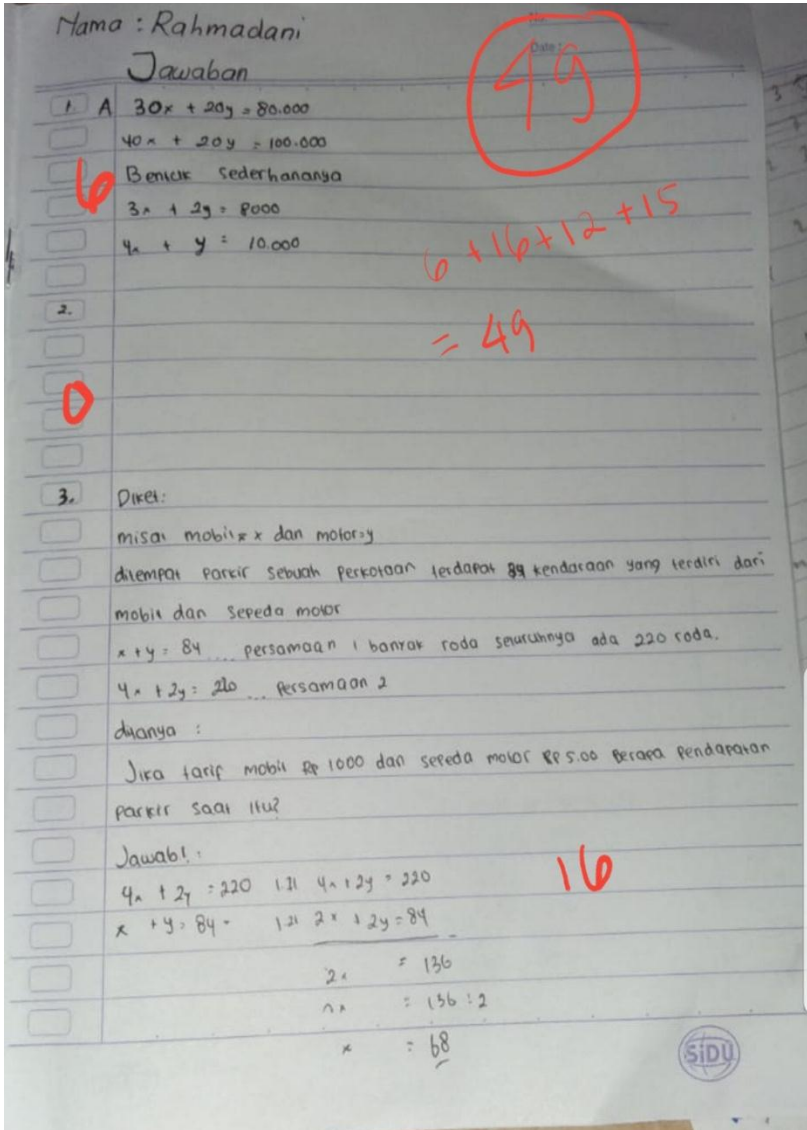 Nama : Rahmadani
No:
Date:
49
Jawaban
1. A 30x + 20y = 80.000
40x + 20y = 100.000
6
Bentuk Sederhananya
3x + 2y = 8000
4x + y = 10.000
6 + 16 + 12 + 15
= 49
2.
0
3. Diket:
misal mobil = x dan motor = y
ditempat parkir sebuah perkotaan terdapat 84 kendaraan yang terdiri dari
mobil dan sepeda motor
x + y = 84 ... persamaan 1 banyak roda seluruhnya ada 220 roda.
4x + 2y = 220 ... Persamaan 2
ditanya :
Jika tarif mobil Rp 1000 dan sepeda motor Rp 5.00 Berapa Pendapatan
Parkir saat itu?
Jawab! :
16
4x + 2y = 220 |.1| 4x + 2y = 220
x + y = 84 - |.2| 2x + 2y = 84
2x = 136
= 136 : 2
x = 68
SiDU